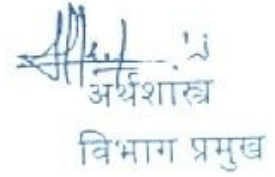 अर्थशास्त्र
विभाग प्रमुख